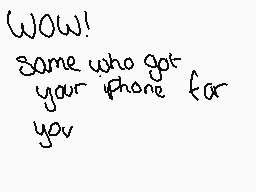 WOW!
same who got
your iphone for
you